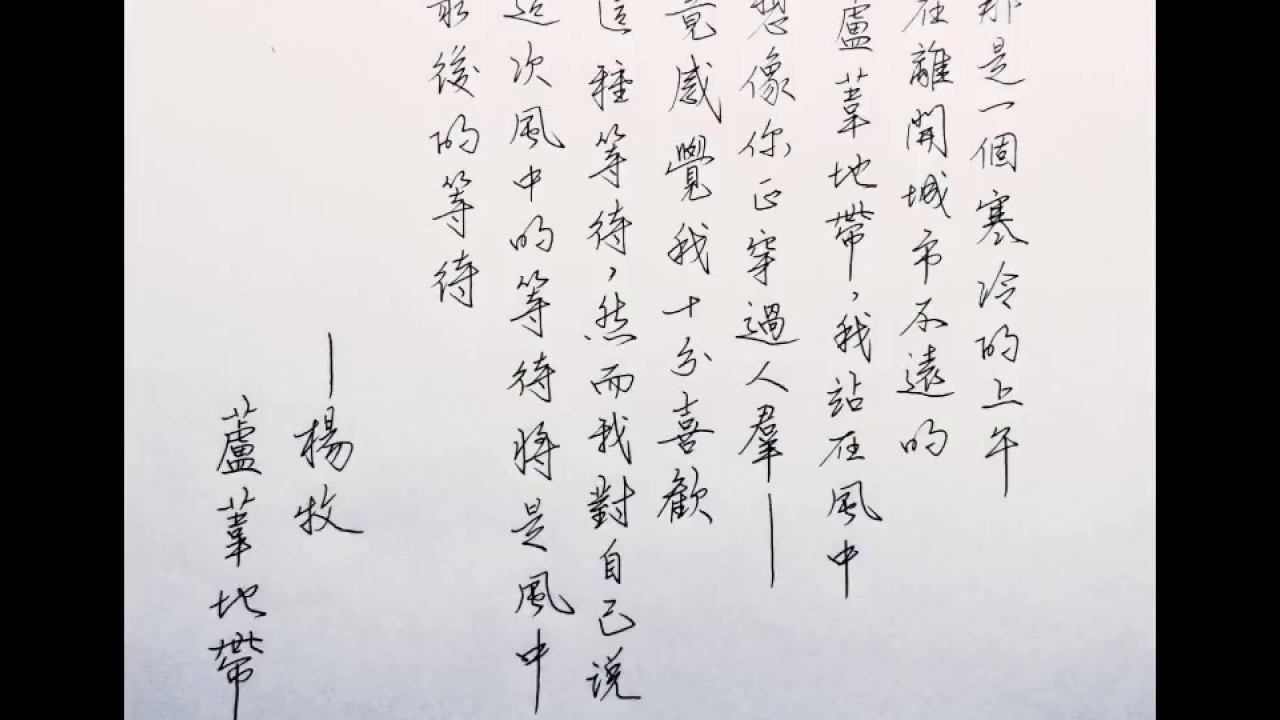 那是一個寒冷的上午
在離開城市不遠的
蘆葦地帶,我站在風中
想像你正穿過人羣——
竟感覺我十分喜歡
這種等待,然而我對自己說
這次風中的等待將是風中
最後的等待
——楊牧
蘆葦地帶